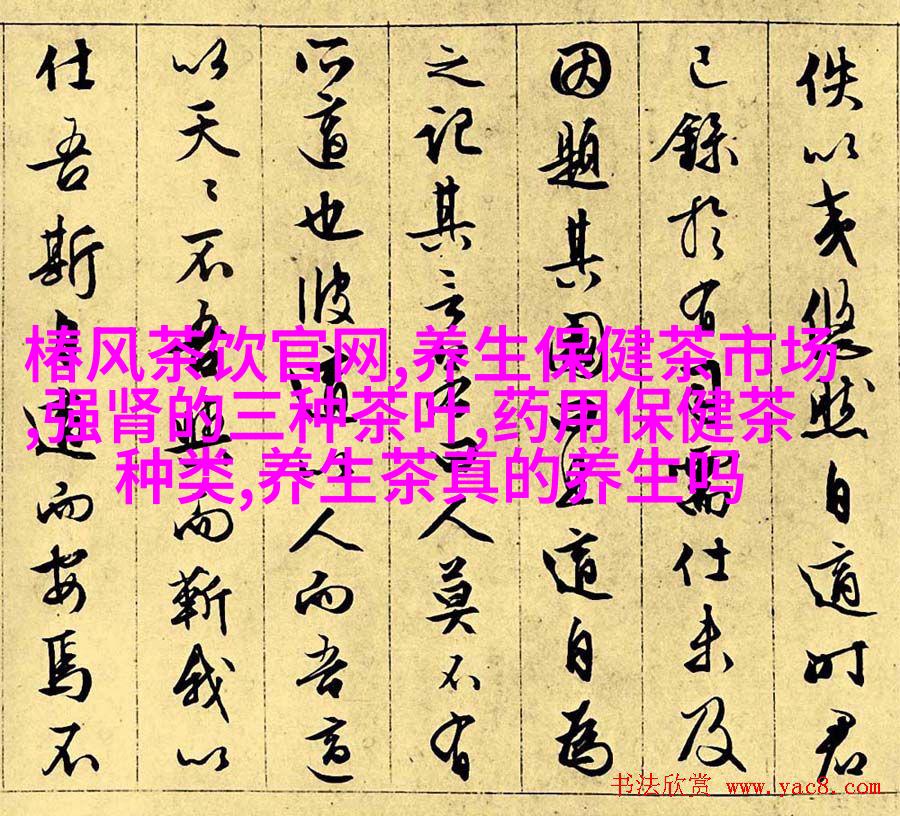 佚以夷悠然自適时君
已錄於有司仕未及
因題其園曰適自為
之記其言曰人莫不有
所適也彼適人而吾適
以天〻不吾而靳我以
仕吾斯適而安焉不
椿风茶饮官网,养生保健茶市场
,强肾的三种茶叶,药用保健茶
种类,养生茶真的养生吗
书法欣赏 www.yac8.com